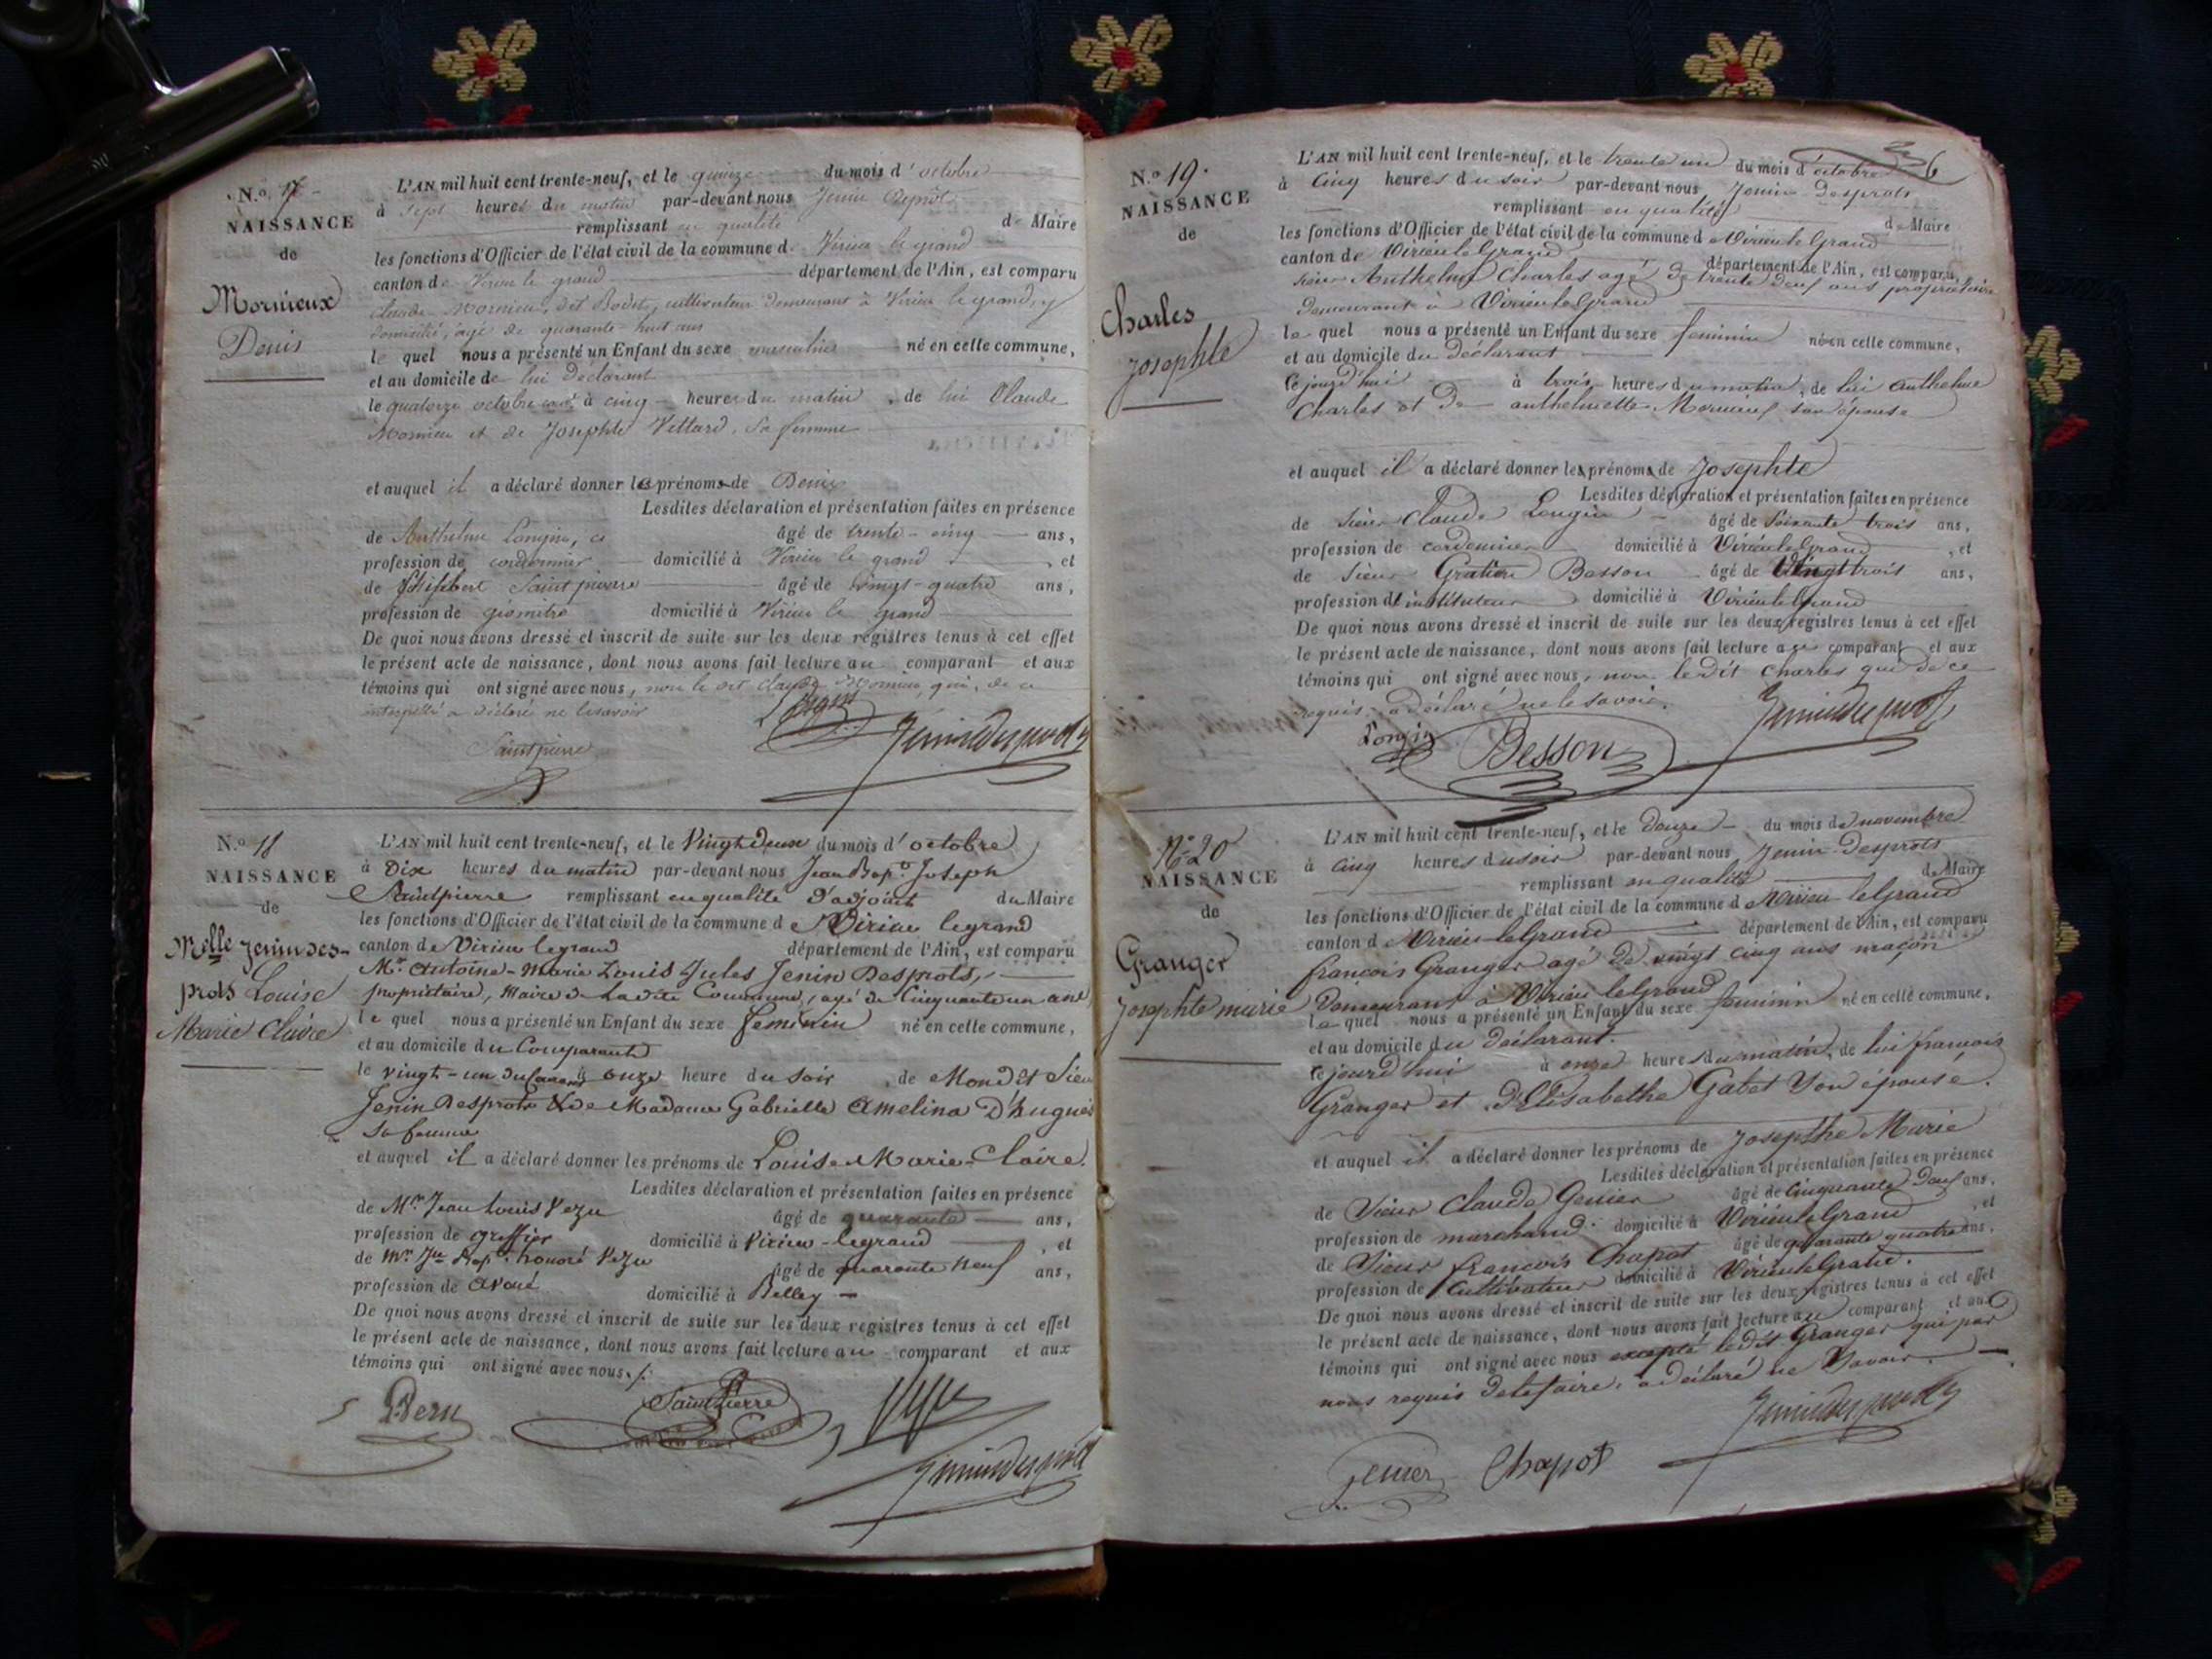 N.o 17
NAISSANCE
de
Mornieux
Denis
L'AN mil huit cent trente-neuf, et le quinze du mois d'octobre
à sept heures du matin par-devant nous Jenin Desprots
remplissant en qualité de Maire
les fonctions d'Officier de l'état civil de la commune de Virieu le grand
canton de Virieu le grand département de l'Ain, est comparu
Claude Mornieu, dit Bodet, cultivateur demeurant à Virieu le grand, y
domicilié, âgé de quarante-huit ans
le quel nous a présenté un Enfant du sexe masculin né en cette commune,
et au domicile de lui déclarant
le quatorze octobre à cinq heures du matin, de lui Claude
Mornieu et de Josephte Vettard, sa femme
et auquel il a déclaré donner les prénoms de Denis
Lesdites déclaration et présentation faites en présence
de Anthelme Longin, âgé de trente-cinq ans,
profession de cordonnier domicilié à Virieu le grand, et
de Saint pierre âgé de vingt-quatre ans,
profession de géomètre domicilié à Virieu le grand
De quoi nous avons dressé et inscrit de suite sur les deux registres tenus à cet effet
le présent acte de naissance, dont nous avons fait lecture au comparant et aux
témoins qui ont signé avec nous, non le dit Claude Mornieu qui, de ce
interpellé a déclaré ne le savoir
Longin
Jenin desprots
Saintpierre
N.o 18
NAISSANCE
de
Melle Jenin des-
prots Louise
Marie Claire
L'AN mil huit cent trente-neuf, et le Vingt deux du mois d'octobre
à Dix heures du matin par-devant nous Jean Bapt. Joseph
Saintpierre remplissant en qualité d'adjoint du Maire
les fonctions d'Officier de l'état civil de la commune de Virieu legrand
canton de Virieu legrand département de l'Ain, est comparu
Mr. Antoine-Marie Louis Jules Jenin Desprots,
propriétaire, Maire de Ladite Commune, agé de Cinquante un ans
le quel nous a présenté un Enfant du sexe feminin né en cette commune,
et au domicile du Comparant
le vingt-un du Courant à onze heure du soir, de Mondit Sieur
Jenin Desprots & de Madame Gabrielle Amelina D'hugues
sa femme
et auquel il a déclaré donner les prénoms de Louise Marie-Claire.
Lesdites déclaration et présentation faites en présence
de Mr. Jean Louis Vezu âgé de quarante ans,
profession de greffier domicilié à Virieu-legrand, et
de Mr. Jn Bapt. honoré Vezu âgé de quarante neuf ans,
profession de avoué domicilié à Belley
De quoi nous avons dressé et inscrit de suite sur les deux registres tenus à cet effet
le présent acte de naissance, dont nous avons fait lecture au comparant et aux
témoins qui ont signé avec nous./.
Saintpierre
Jenin desprots
6
N.o 19.
NAISSANCE
de
Charles
Josephte
L'AN mil huit cent trente-neuf, et le trente un du mois d'octobre
à Cinq heures du soir par-devant nous Jenin Desprots
remplissant en qualité de Maire
les fonctions d'Officier de l'état civil de la commune de Virieu le Grand
canton de Virieu le Grand département de l'Ain, est comparu
sieur Anthelme Charles agé de trente deux ans propriétaire
demeurant à Virieu le Grand
le quel nous a présenté un Enfant du sexe feminin né en cette commune,
et au domicile du déclarant
Ce jourd'hui à trois heures du matin, de lui Anthelme
Charles et de anthelmette Mornieux son épouse
et auquel il a déclaré donner les prénoms de Josephte
Lesdites déclaration et présentation faites en présence
de sieur Claude Longin âgé de Soixante trois ans,
profession de cordonnier domicilié à Virieu le Grand, et
de sieur Gratien Besson âgé de Vingt trois ans,
profession d'instituteur domicilié à Virieu le Grand
De quoi nous avons dressé et inscrit de suite sur les deux registres tenus à cet effet
le présent acte de naissance, dont nous avons fait lecture au comparant et aux
témoins qui ont signé avec nous, non ledit Charles qui de ce
requis a déclaré ne le savoir.
Jenin desprots
Longin
Besson
N.o 20
NAISSANCE
de
Granger
Josephte marie
L'AN mil huit cent trente-neuf, et le Douze du mois de novembre
à cinq heures du soir par-devant nous Jenin Desprots
remplissant en qualité de Maire
les fonctions d'Officier de l'état civil de la commune de Virieu le Grand
canton de Virieu le Grand département de l'Ain, est comparu
françois Granger agé de vingt cinq ans maçon
demeurant à Virieu le Grand
le quel nous a présenté un Enfant du sexe feminin né en cette commune,
et au domicile du déclarant.
Ce jourd'hui à onze heures du matin, de lui françois
Granger et d'Elisabethe Gabet son épouse.
et auquel il a déclaré donner les prénoms de Josepthe Marie
Lesdites déclaration et présentation faites en présence
de Sieur Claude Genier âgé de cinquante deux ans,
profession de marchand domicilié à Virieu le Grand, et
de Sieur françois Chapot âgé de quarante quatre ans,
profession de Cultivateur domicilié à Virieu le Grand.
De quoi nous avons dressé et inscrit de suite sur les deux registres tenus à cet effet
le présent acte de naissance, dont nous avons fait lecture au comparant et aux
témoins qui ont signé avec nous excepté ledit Granger qui par
nous requis de le faire, a déclaré ne savoir.
Jenin desprots
Genier Chapot